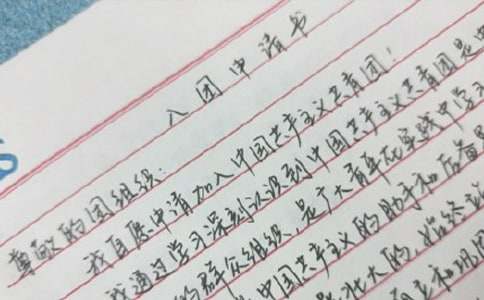 入团申请书
尊敬的团组织:
我自愿申请加入中国共产主义共青团!
我通过学习深刻认识到中国共产主义共青团是中
的群众组织,是广大青年在实践中学习
中国共产主义的助手和后备
大的,始终站